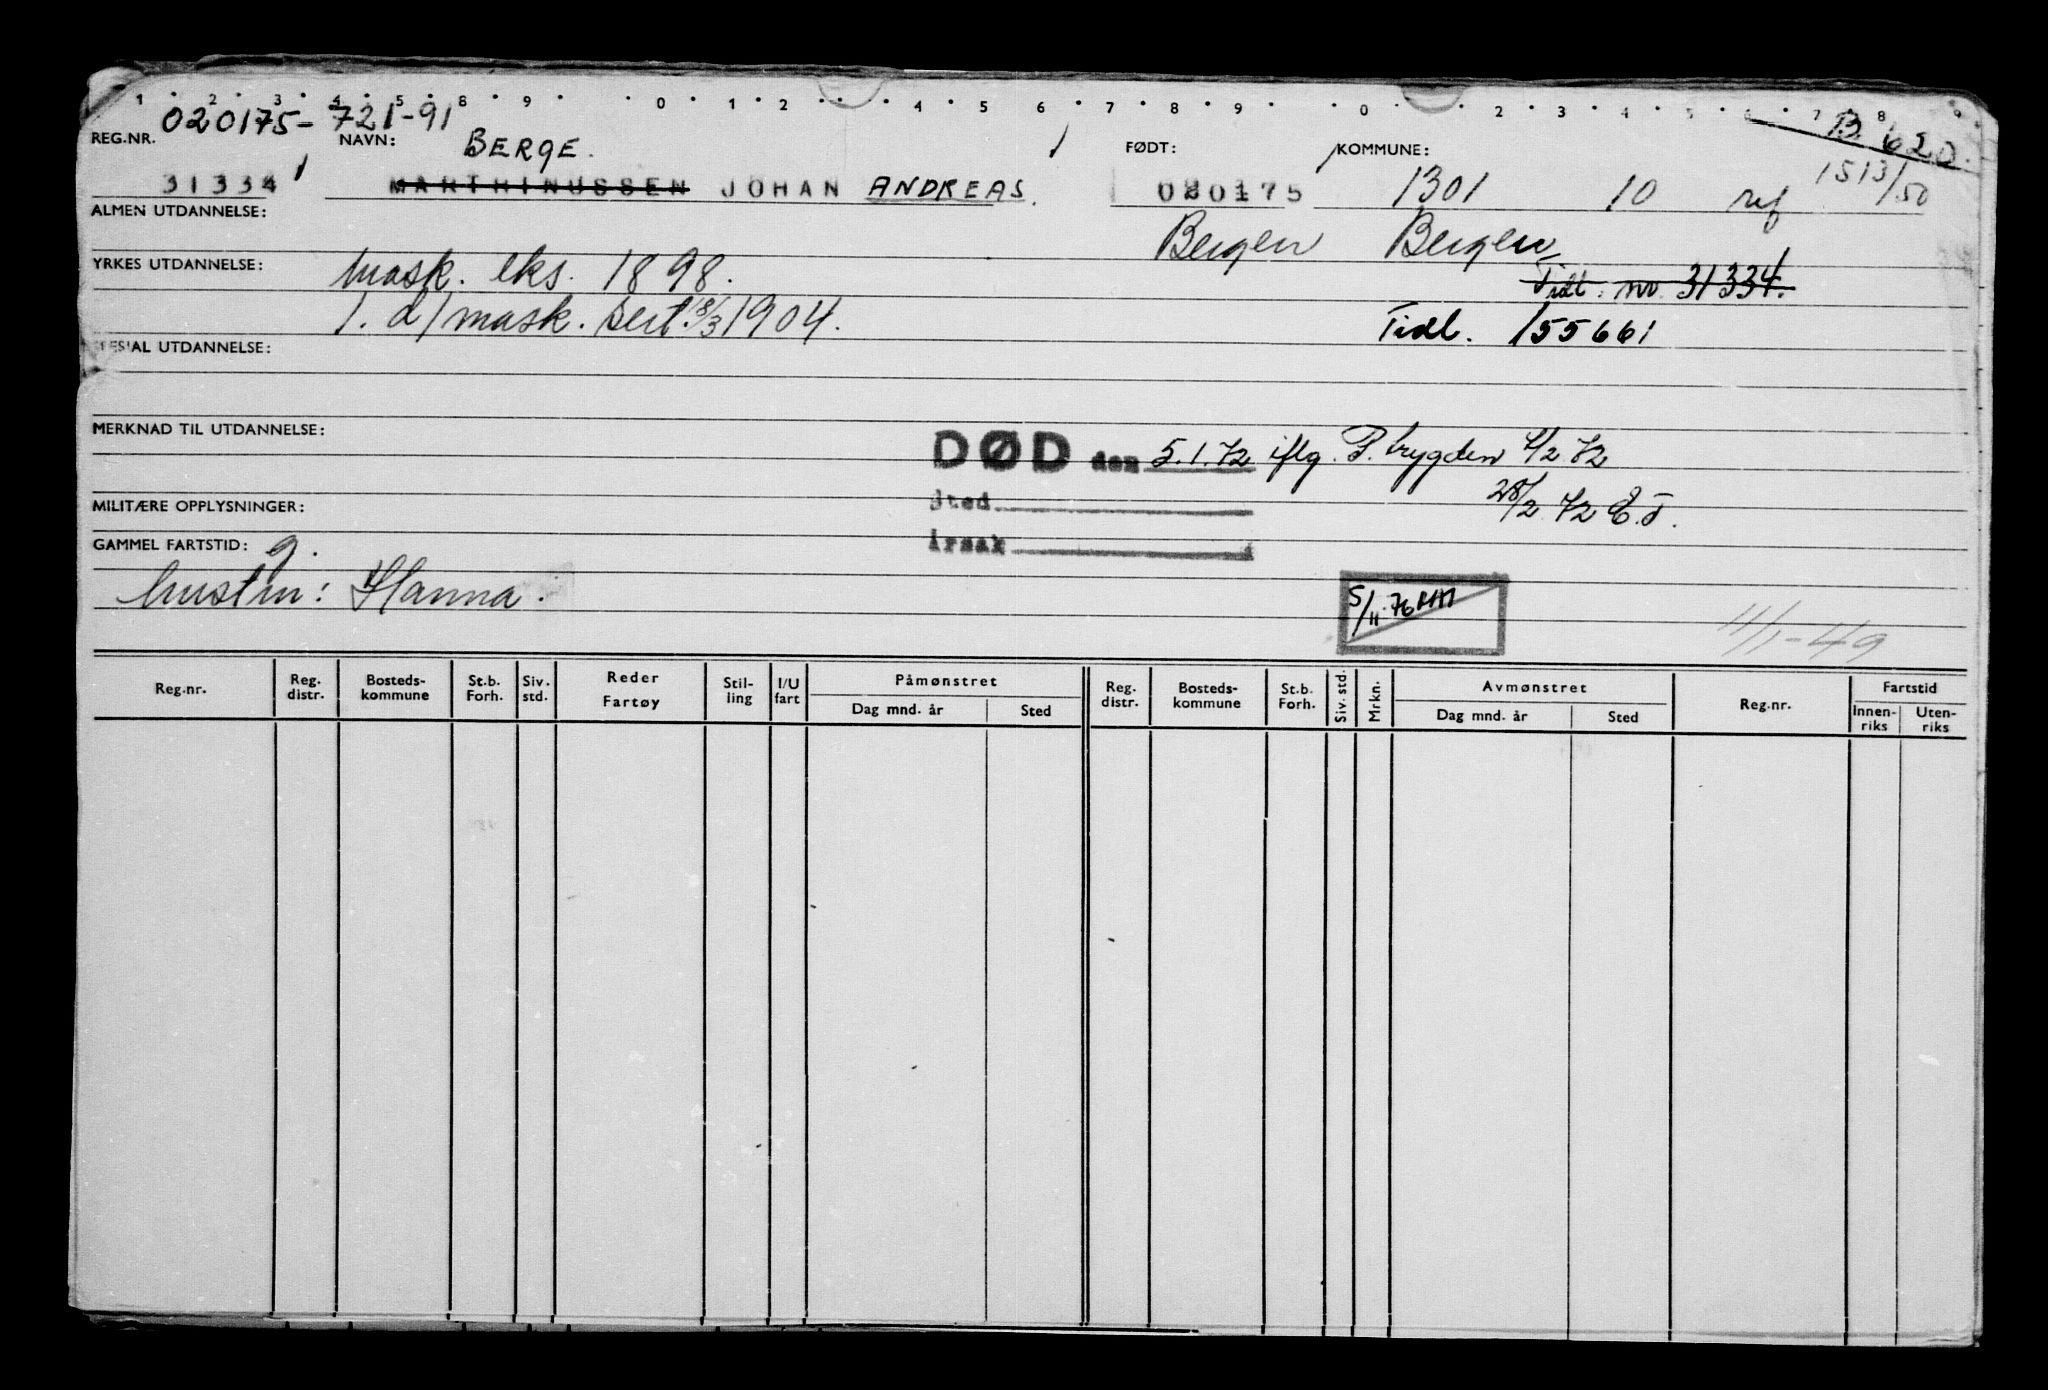 1 · 2 · 3 · 4 · 5 · 8 · 9 · · 0 · 1 · 2 · · 4 · 5 · 6 · 7 · 8 · 9 · · 0 · · 2 · 3 · 4 · 5 · 6 · 7 · 8 · 9
020175-721-91
REG.NR. NAVN: BERGE. FØDT: KOMMUNE: B. 620.
31334 MARTHINUSSEN JOHAN ANDREAS. 020175 1301 10 1513/50
ALMEN UTDANNELSE: Bergen Bergen
YRKES UTDANNELSE: Mask. eks. 1898. Tidl. nr. 31334.
1. d/mask. sert. 18/3 1904. Tidl. 155661
SPESIAL UTDANNELSE:
MERKNAD TIL UTDANNELSE: DØD den 5.1.72 iflg. P. trygden 4/2 72
MILITÆRE OPPLYSNINGER: Sted 28/2 72 E.T.
GAMMEL FARTSTID: g. Årsak
hustru: Hanna. 5/11 76 11/1-49
Reg.nr. Reg. distr. Bosteds-kommune St.b. Forh. Siv. std. Reder Fartøy Stil-ling I/U fart Påmønstret Dag mnd. år Sted Reg. distr. Bosteds-kommune St.b. Forh. Siv. std. Mrkn. Avmønstret Dag mnd. år Sted Reg.nr. Fartstid Innen-riks Uten-riks